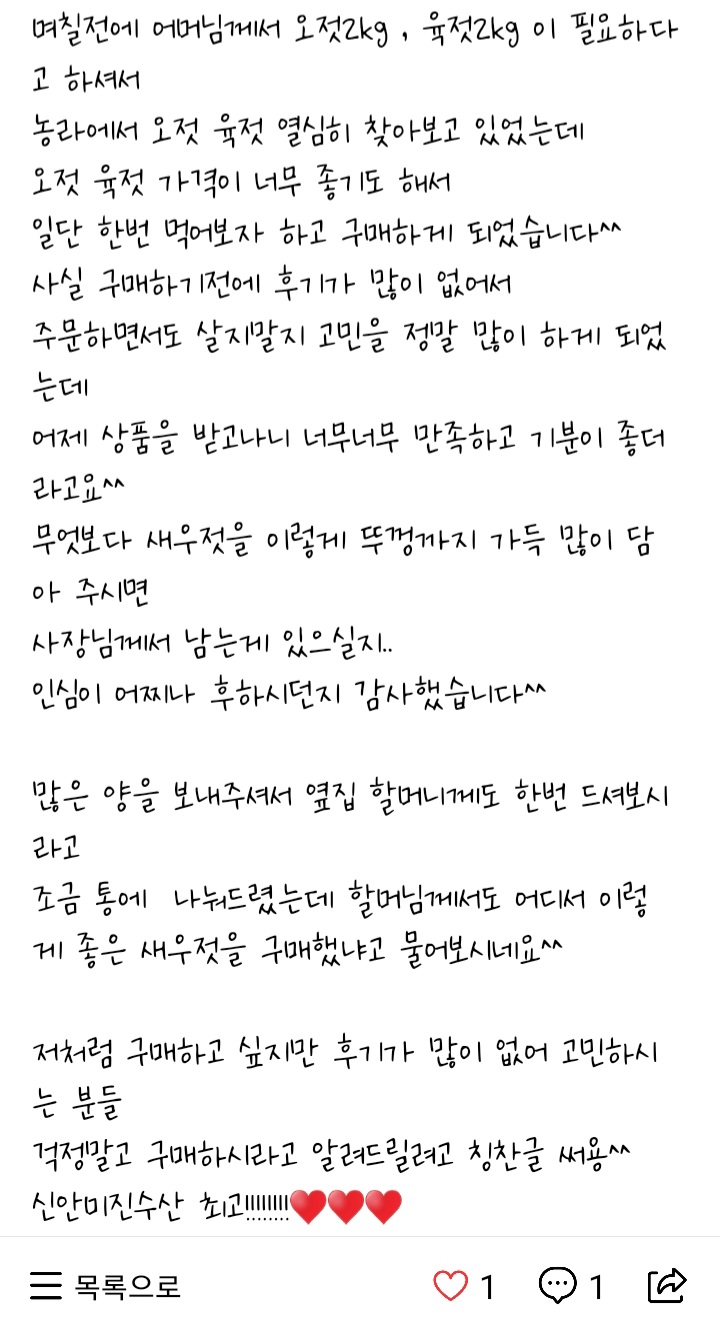 며칠전에 어머님께서 오젓2kg , 육젓2kg 이 필요하다
고 하셔서
농라에서 오젓 육젓 열심히 찾아보고 있었는데
오젓 육젓 가격이 너무 좋기도 해서
일단 한번 먹어보자 하고 구매하게 되었습니다^^
사실 구매하기전에 후기가 많이 없어서
주문하면서도 살지말지 고민을 정말 많이 하게 되었
는데
어제 상품을 받고나니 너무너무 만족하고 기분이 좋더
라고요^^
무엇보다 새우젓을 이렇게 뚜껑까지 가득 많이 담
아 주시면
사장님께서 남는게 있으실지..
인심이 어찌나 후하시던지 감사했습니다^^
많은 양을 보내주셔서 옆집 할머니께도 한번 드셔보시
라고
조금 통에 나눠드렸는데 할머님께서도 어디서 이렇
게 좋은 새우젓을 구매했냐고 물어보시네요^^
저처럼 구매하고 싶지만 후기가 많이 없어 고민하시
는 분들
걱정말고 구매하시라고 알려드릴려고 칭찬글 써용^^
신안미진수산 최고!!!!!!!!❤️❤️❤️
목록으로 1 1